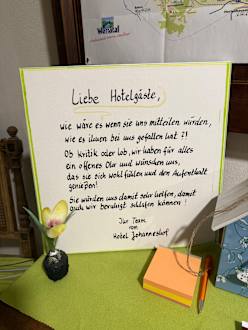 Liebe Hotelgäste,
wie wäre es wenn sie uns mitteilen würden,
wie es ihnen bei uns gefallen hat ?!
Ob Kritik oder Lob, wir haben für alles
ein offenes Ohr und wünschen uns,
das sie sich wohl fühlen und den Aufenthalt
genießen!
Sie würden uns damit sehr helfen, damit
auch wir beruhigt schlafen können!
Ihr Team
vom
Hotel Johanneshof